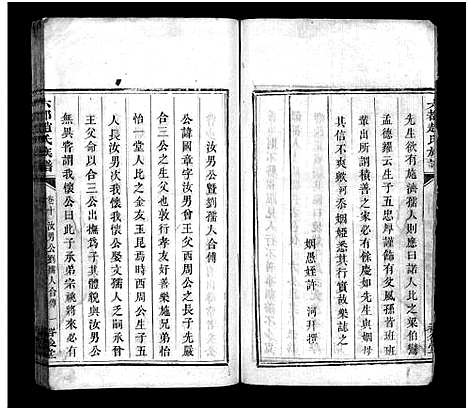 先生欲有施濟孺人則應曰諸人比之梁伯鸞
孟德耀云生子五忠厚謹飭有文風孫曾班班
輩出所謂積善之家必有餘慶如先生與姻母
其信不爽歟河忝姻婭悉其行實故樂誌之
姻愚姪許 河拜撰
六都趙氏族譜
卷十 汝男公劉孺人合傳
汝男公暨劉孺人合傳
公諱國章字汝男曾王父西周公之長子先嚴
合三公之生父也敦行孝友好善樂施兄弟怡
一堂人比之金友玉昆焉時西周公生子五
人長汝男次我懷公娶文孺人乏嗣承曾
王父命以合三公出撫為子其體貌與汝男公
無異皆謂我懷公曰此子承弟宗祧將來必